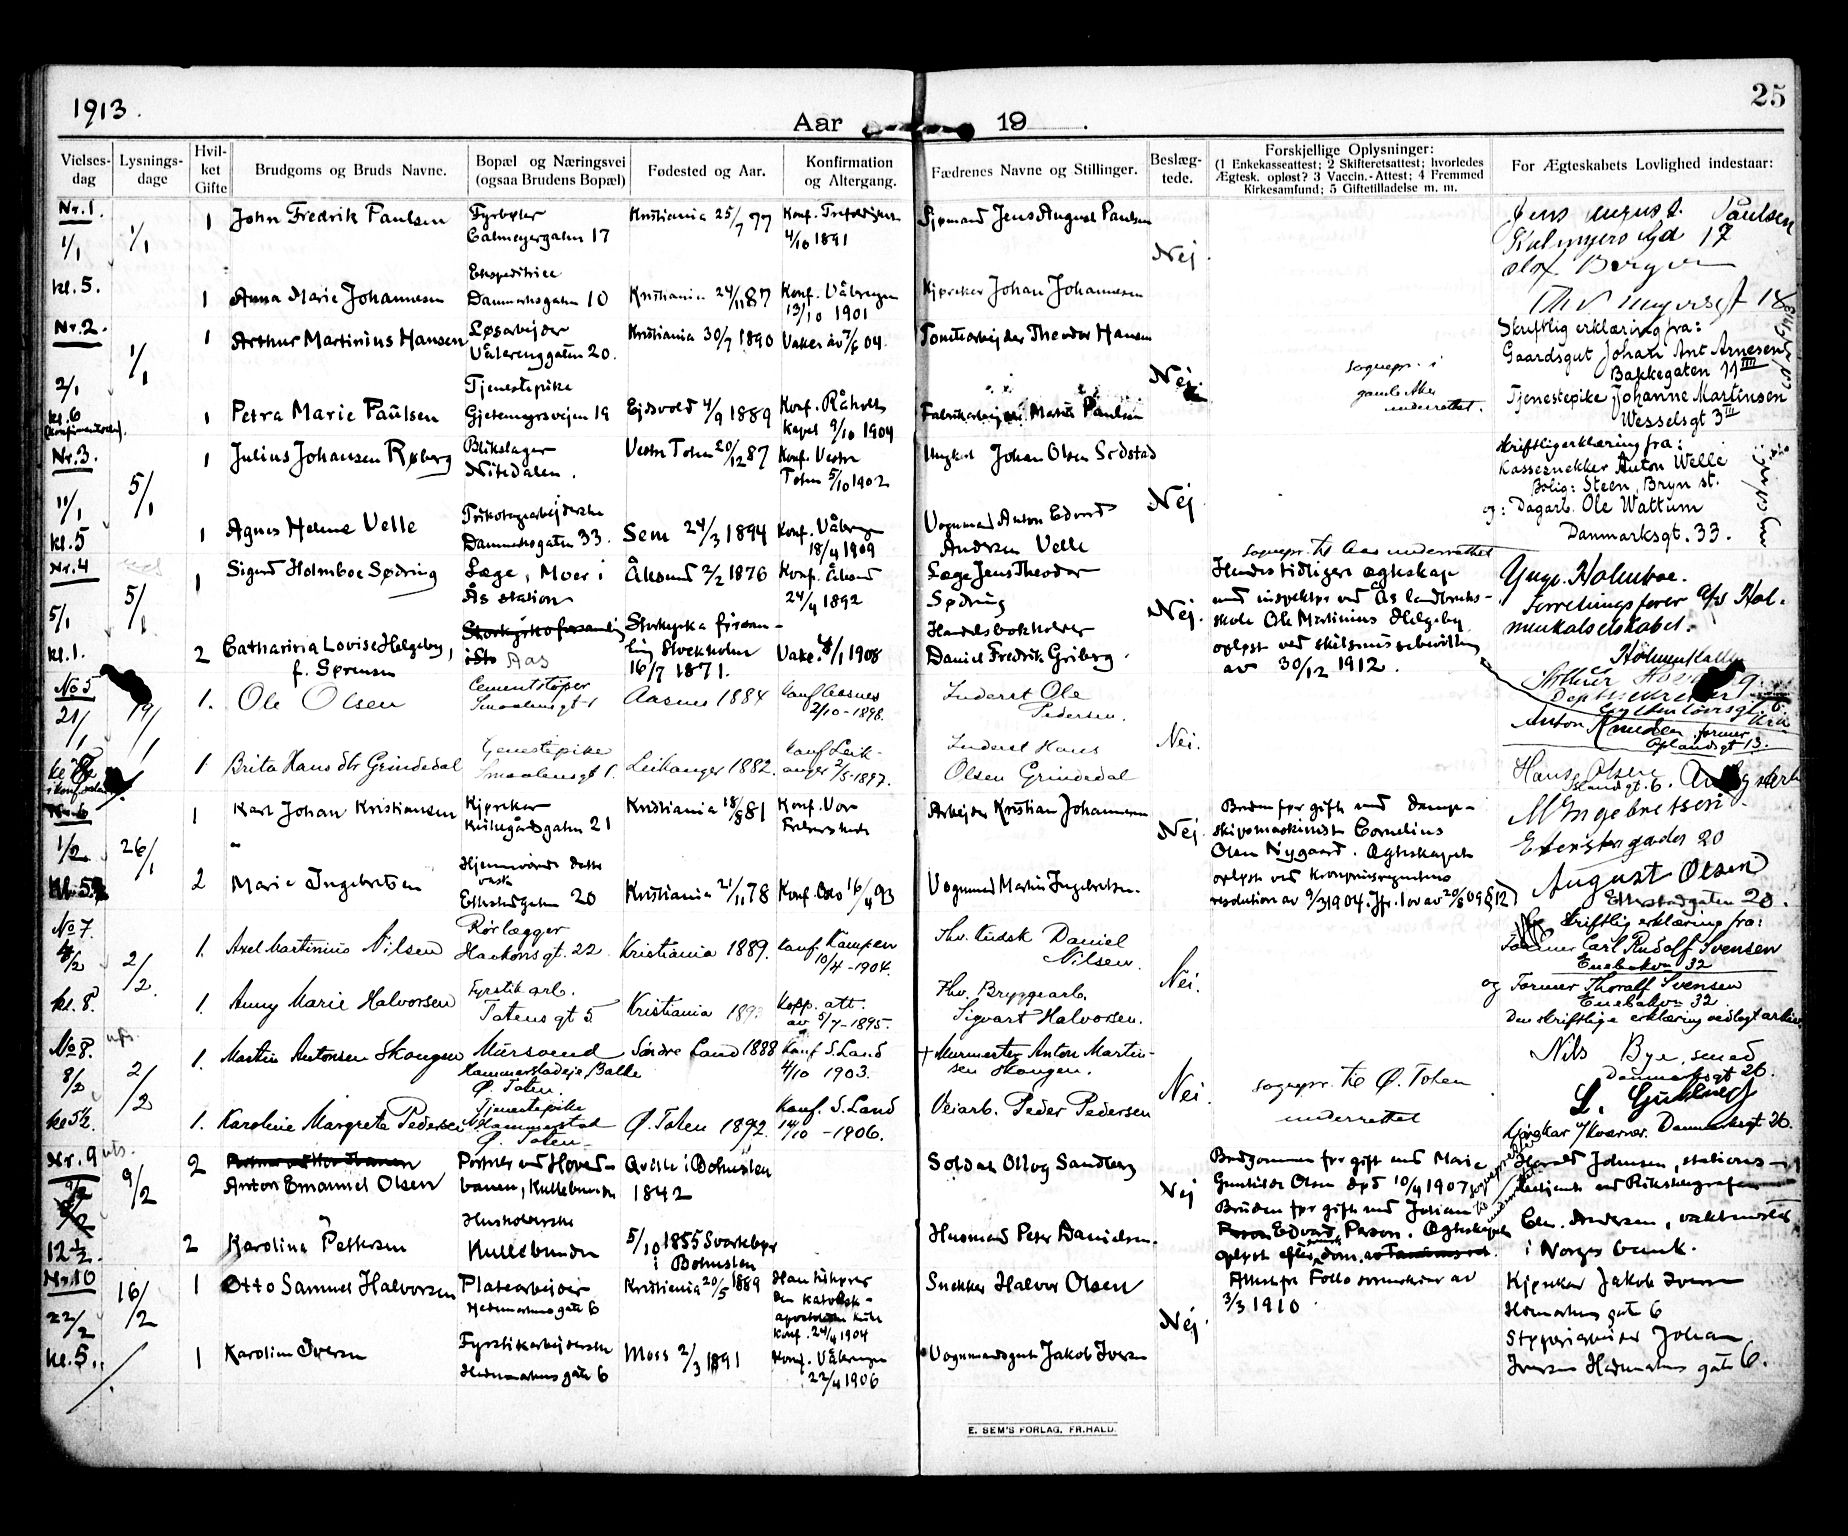 1913.
25
Aar
19
Vielses-dag
Lysnings-dage
Hvil-ket Gifte
Brudgoms og Bruds Navne.
Bopæl og Næringsvei (ogsaa Brudens Bopæl)
Fødested og Aar.
Konfirmation og Altergang.
Fædrenes Navne og Stillinger.
Beslæg-tede.
Forskjellige Oplysninger:
(1 Enkekasseattest; 2 Skifteretsattest; hvorledes
Ægtesk. opløst? 3 Vaccin.-Attest; 4 Fremmed
Kirkesamfund; 5 Giftetilladelse m. m.
For Ægteskabets Lovlighed indestaar:
Nr. 1.
1/1
kl. 5.
1/1
1 John Fredrik Paulsen
Fyrbøter
Calmeyergaten 17
Kristiania 25/7 77
4/10 1891
Sjømand Jens August Paulsen
Nej.
Jens August Paulsen
1 Anna Marie Johannesen
Ekspeditrice
Danmarksgaten 10
Kristiania 24/11 87
Konf. Vålerengen
13/10 1901
Kjører Johan Johannesen
Nr. 2.
2/1
kl. 6
1/1
1 Arthur Martinius Hansen
Løsarbejder
Vålerenggaten 20.
Kristiania 30/7 1890
Tomtearbejder Theodor Hansen
Nej.
sognepr. i
gamle Aker
underrettet.
Skriftlig erklæring fra:
Gaardsgut Johan Ant Arnesen
Bakkegaten 11 III
Tjenestepike Johanne Martinsen
Wesselsgt 3 III
1 Petra Marie Paulsen
Tjenestepike
Gjetemyrsvejen 19
Ejdsvold 4/9 1889
Konf. Råholts
Kapel 9/10 1904
Fabrikarbejder Marius Paulsen
Nr. 3.
11/1
kl. 5
5/1
1 Julius Johansen Røberg
Blikslager
Nitedalen.
Vestre Toten 20/12 87
Konf. Vestre
Toten 5/10 1902
Ungkarl Johan Olsen Sodstad
Nej.
Skriftlig erklæring fra:
Kassesnekker Anton Welle
Bolig: Steen, Bryn st.
og: Dagarb. Ole Wattum
Danmarksgt. 33.
1 Agnes Helene Velle
Trikotagearbejderske
Danmarksgaten 33.
Sem 24/3 1894
Konf. Vålereng
18/4 1909
Vognmand Anton Edvard
Andersen Velle
Nr. 4
5/1
kl. 1.
5/1
1 Sigurd Holmboe Sødring
Læge, Moer i
Ås station
Ålesund 2/2 1876
Konf. Ålesund
24/4 1892
Læge Jens Theodor
Sødring
Nej.
sognepr. til Aas underrettet
Hendes tidligere ægteskap
med inspektør ved Ås landbruks-
skole Ole Martinius Helgeby
opløst ved skilsmissebevilling
av 30/12 1912.
Yngv. Holmboe.
2 Catharina Lovise Helgeby,
f. Sørensen
Aas
Storkyrka försam-
ling Stockholm
16/7 1871.
Handelsbokholder
Daniel Fredrik Griberg.
No 5
21/1
19/1
1. Ole Olsen
Cementstøper
Smaalensgt 1
Aasnes 1884
Konf Aasnes
2/10-1898.
Inderst Ole
Pedersen.
Nei.
Anton Knudsen, former
Oplandsgt 13.
1 Brita Hansdtr Grindedal
Tjenestepike
Smaalensgt 1.
Leikanger 1882.
Konf Leik-
anger 2/5-1897.
Inderst Hans
Olsen Grindedal
Hans Olsen
Islandsgt. 6.
Nr. 6
1/2
26/1
1 Karl Johan Kristiansen
Kjører
Kristiania 18/8 81
Arbejder Kristian Johannesen
Nej.
Bruden før gift med damp-
skipsmaskinist Cornelius
Olsen Nygaard. Ægteskapet
opløst ved Kronprinsregentens
resolution av 9/3 1904. Jfr. lov av 20/8 09 § 12)
M Ingebretsen
Etterstadgaden 20
2 Marie Ingebretsen
Etterstadgaten 20
Kristiania 21/11 78
Konf. Oslo 16/4 93
Vognmand Martin Ingebretsen.
August Olsen
Etterstadgaten 20.
No 7.
8/2
kl. 8.
2/2.
1. Axel Martinius Nilsen
Rørlægger
Haakonsgt. 22.
Kristiania 1889.
Konf. Kampen
10/4-1904.
Fhv. Kudsk Daniel
Nilsen.
Nei.
Skriftlig erklæring fra:
Former Carl Rudolf Svensen
Enebakvn 32
og Former Thoralf Svensen
Enebakvn 32.
Den skriftlige erklæring vedlagt arkiv
1. Anny Marie Halvorsen
Fyrstik arb.
Totensgt 5.
Kristiania
Kopp. att.
av 5/7-1895.
Fhv. Bryggearb.
Sigvart Halvorsen.
No 8.
8/2
kl 5½.
2/2
1. Martin Antonsen Skougen
Mursvend
Kammerstadeje, Balke
Ø. Toten.
Søndre Land 1888
Konf S. Land
4/10 1903.
† Murmester Anton Martin-
sen Skougen.
Nei.
sognepr. til Ø. Toten
underrettet
Nils Bye, smed
Danmarksgt 26.
1. Karoline Margrete Pedersen
Tjenestepike
Kammerstad
Ø. Toten
Ø. Toten 1892.
Konf. S. Land
14/10 -1906.
Veiarb. Peder Pedersen
Danmarksgt 26.
Nr. 9
12½.
9/2
2 Anton Emanuel Olsen
Portner ved Hoved-
banen, Kullebunden
Qville i Bohuslen
1842
Soldat Olaog Sandberg
Nej
Brudgommen før gift med Marie
Gunhilde Olsen død 10/4 1907
Bruden før gift med Johan
Edvard Person. Ægteskapet
Harald Johnsen, stations-
betjent ved Rikstelegrafen
Chr. Andersen, vaktmester
i Norges bank.
2 Karolina Pettersen
Husholderske
Kullebunden
5/10 1855 Svarteborg
i Bohuslen
Husmand Peter Danielsen.
Nr. 10
22/2
kl. 5.
16/2
1 Otto Samuel Halvorsen
Platearbejder
Hedemarkens gate 6
Kristiania 20/5 1889
Han tilhører
den katolsk-
apostoliske kirke
Konf. 24/4 1904
Snekker Halvor Olsen
Nej.
Attest fra Follo sorenskriver av
3/3 1910.
Kjører Jakob Iversen
Hedemarkens gate 6
Styperiarbeider Johan
Iversen Hedemarkens gate 6.
1 Karoline Iversen
Fyrstikarbejderske
Hedemarkens gate 6
Moss 2/3 1891
Konf. Vålerengen
22/4 1906
Vognmandsgut Jakob Iversen
E. SEM'S FORLAG, FR.HALD.